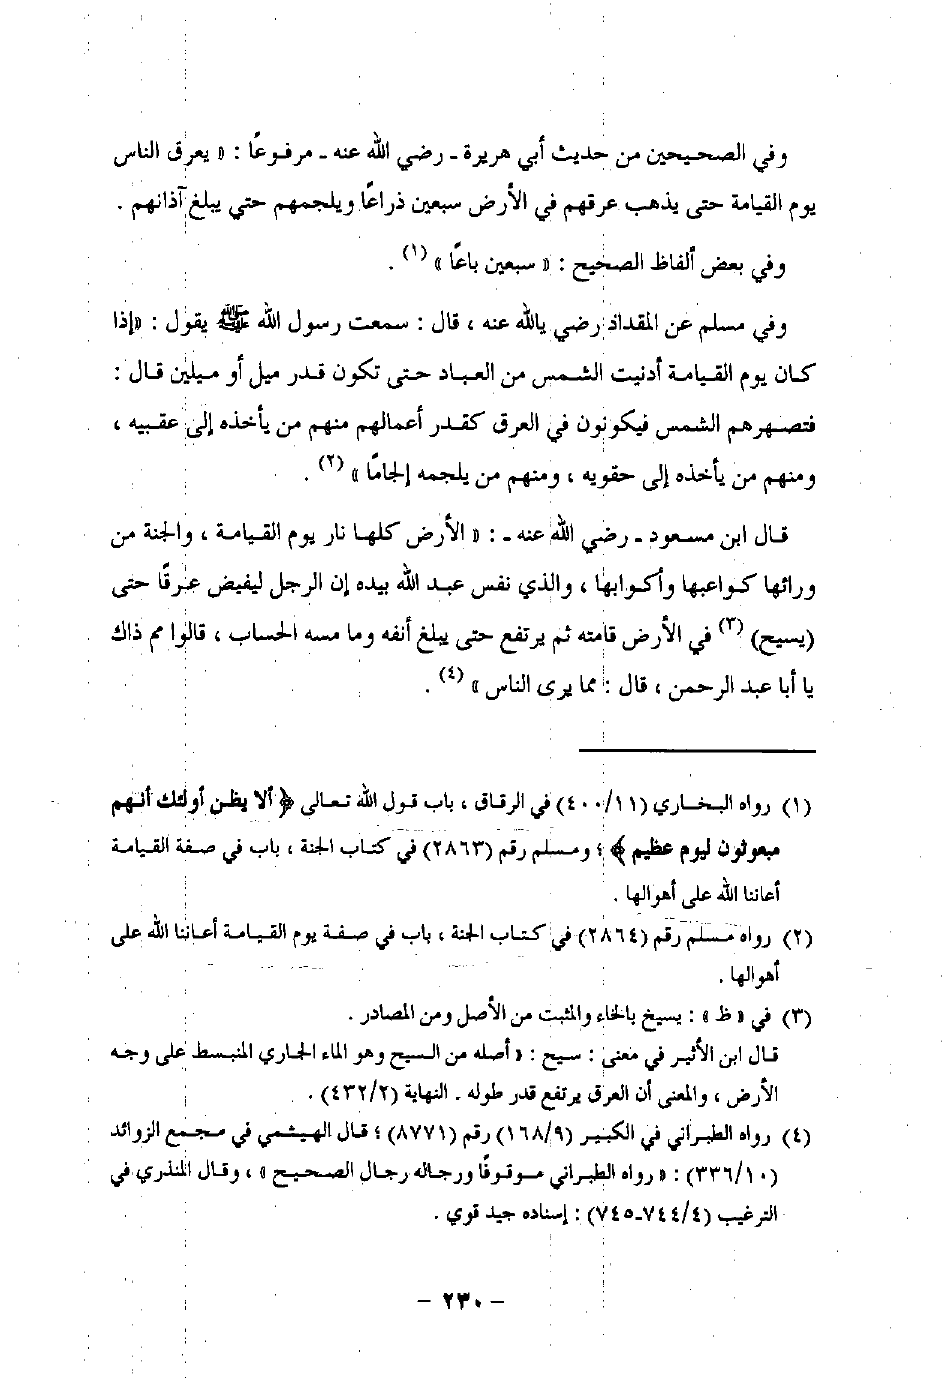 وفي الصحيحين من حديث أبي هريرة ـ رضي الله عنه ـ مرفوعًا : « يعرق الناس
يوم القيامة حتى يذهب عرقهم في الأرض سبعين ذراعًا ويلجمهم حتي يبلغ آذانهم .
وفي بعض ألفاظ الصحيح : « سبعين باعًا » (١) .
وفي مسلم عن المقداد رضي يالله عنه ، قال : سمعت رسول الله ﷺ يقول : «إذا
كان يوم القيامة أدنيت الشمس من العباد حتى تكون قدر ميل أو ميلين قال :
فتصهرهم الشمس فيكونون في العرق كقدر أعمالهم منهم من يأخذه إلى عقبيه ،
ومنهم من يأخذه إلى حقويه ، ومنهم من يلجمه إلجامًا » (٢) .
قال ابن مسعود ـ رضي الله عنه ـ : « الأرض كلها نار يوم القيامة ، والجنة من
ورائها كواعبها وأكوابها ، والذي نفس عبد الله بيده إن الرجل ليفيض عرقًا حتى
(يسيح) (٣) في الأرض قامته ثم يرتفع حتى يبلغ أنفه وما مسه الحساب ، قالوا مم ذاك
يا أبا عبد الرحمن ، قال : مما يرى الناس » (٤) .
(١) رواه البخاري (٤٠٠/١١) في الرقاق ، باب قول الله تعالى ﴿ ألا يظن أولئك أنهم
مبعوثون ليوم عظيم ﴾ ؛ ومسلم رقم (٢٨٦٣) في كتاب الجنة ، باب في صفة القيامة
أعاننا الله على أهوالها .
(٢) رواه مسلم رقم (٢٨٦٤) في كتاب الجنة ، باب في صفة يوم القيامة أعاننا الله على
أهوالها .
(٣) في « ظ » : يسيخ بالخاء والمثبت من الأصل ومن المصادر .
قال ابن الأثير في معنى : سيح : « أصله من السيح وهو الماء الجاري المنبسط على وجه
الأرض ، والمعنى أن العرق يرتفع قدر طوله . النهاية (٤٣٢/٢) .
(٤) رواه الطبراني في الكبير (١٦٨/٩) رقم (٨٧٧١) ؛ قال الهيثمي في مجمع الزوائد
(٣٣٦/١٠) : « رواه الطبراني موقوفًا ورجاله رجال الصحيح » ، وقال المنذري في
الترغيب (٧٤٤/٤ـ٧٤٥) : إسناده جيد قوي .
– ٢٣٠ –